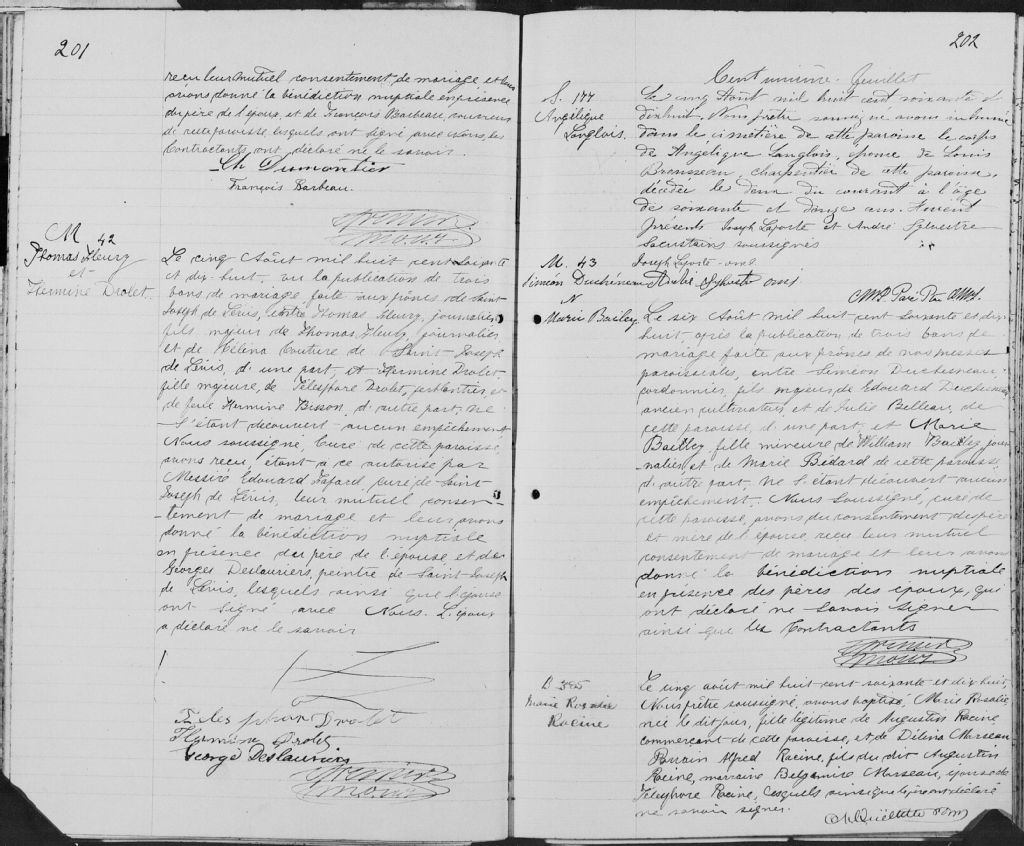 201
reçu leur mutuel consentement de mariage et leur
avons donné la bénédiction nuptiale en présence
du père de l'époux, et de François Barbeau, couvreur
de cette paroisse, lesquels ont signé avec nous, les
Contractants, ont déclaré ne le savoir.
Ch Dumontier
François Barbeau.
M 42
Thomas Fleury
et
Hermine Drolet.
Le cinq Août mil huit cent soixante
et dix-huit, vu la publication de trois
bans de mariage, faite aux prônes de Saint-
Joseph de Lévis, entre Thomas Fleury, journalier,
fils majeur de Thomas Fleury, journalier
et de Hélina Couture de Saint-Joseph
de Lévis, d'une part, et Hermine Drolet
fille majeure, de Télesphore Drolet, ferblantier, et
de feue Hermine Bisson, d'autre part, ne
s'étant découvert aucun empêchement
Nous soussigné, Curé de cette paroisse,
avons reçu, étant à ce autorisé par
Messire Edouard Fafard, curé de Saint-
Joseph de Lévis, leur mutuel consen-
-tement de mariage et leur avons
donné la bénédiction nuptiale
en présence du père de l'épouse, et de
Georges Deslauriers, peintre de Saint-Joseph
de Lévis, lesquels ainsi que l'épouse
ont signé avec Nous. L'époux
a déclaré ne le savoir
Telesphore Drolet
Hermine Drolet
George Deslauriers
202
Cent unième feuillet
S. 177
Angélique
Langlois.
Le cinq Août mil huit cent soixante et
dixhuit, Nous prêtre soussigné avons inhumé
dans le cimetière de cette paroisse le corps
de Angélique Langlois, épouse de Louis
Brousseau, charpentier de cette paroisse,
décédée le deux du courant à l'âge
de soixante et douze ans. Furent
présents Joseph Laporte et André Sylvestre
sacristains soussignés
Joseph Laporte
André Sylvestre
M. 43
Siméon Duchéneau
N
Marie Bailey.
Le six Août mil huit cent soixante et dix
huit, après la publication de trois bans de
mariage faite aux prônes de nos messes
paroissiales, entre Siméon Duchesneau
cordonnier, fils majeur, de Edouard Duchesneau
ancien cultivateur, et de Julie Belleau, de
cette paroisse, d'une part, et Marie
Bailley fille mineure de William Bailley jour-
nalier, et de Marie Bédard de cette paroisse,
d'autre part, ne s'étant découvert aucun
empêchement, Nous Soussigné, curé de
cette paroisse, avons du consentement des père
et mère de l'épouse, reçu leur mutuel
consentement de mariage et leur avons
donné la bénédiction nuptiale
en présence des pères des époux, qui
ont déclaré ne savoir signer
ainsi que les Contractants
B 385
Marie Rosalie
Racine
Le cinq août mil huit cent soixante et dix huit,
Nous prêtre soussigné, avons baptisé, Marie Rosalie,
née le dit jour, fille légitime de Augustin Racine,
commerçant de cette paroisse, et de Délina Marseau
Parrain Alfred Racine, fils du dit Augustin
Racine, marraine Belzémire Marseau, épouse de
Télesphore Racine, lesquels ainsi que le père ont déclaré
ne savoir signer.